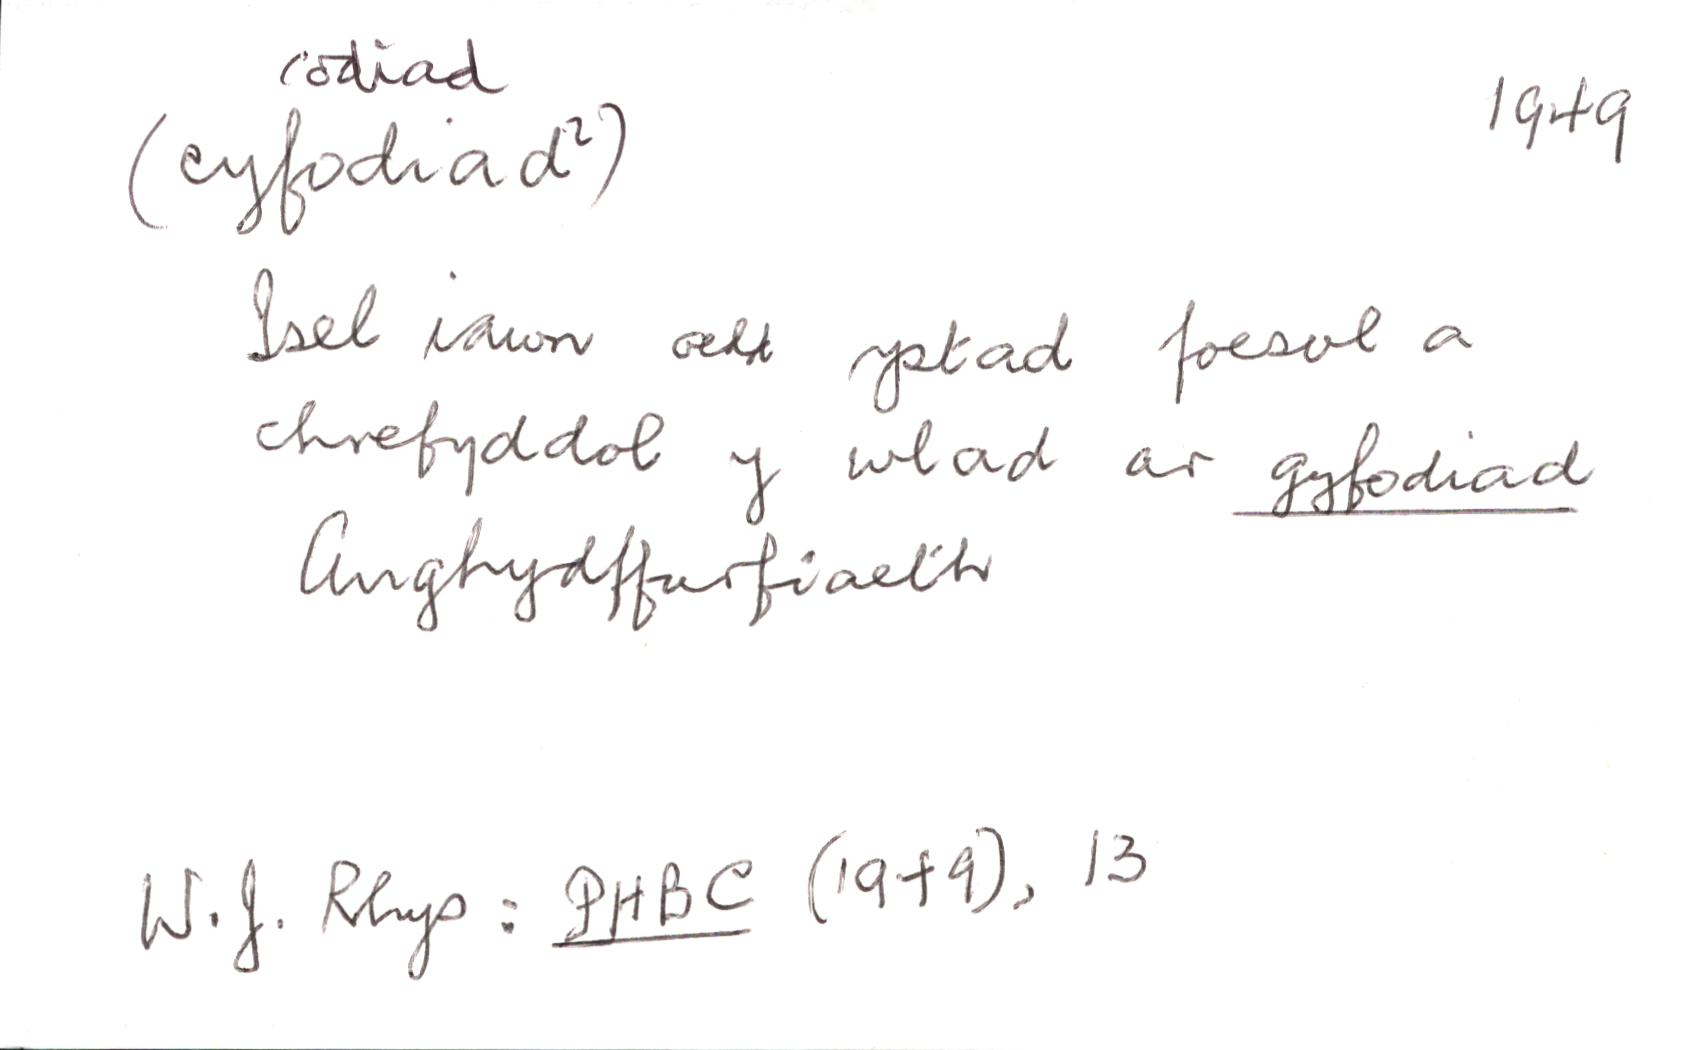 codiad
(cyfodiad²)
1949
Isel iawn oedd ystad foesol a
chrefyddol y wlad ar gyfodiad
Anghydffurfiaeth
W. J. Rhys : PHBC (1949), 13